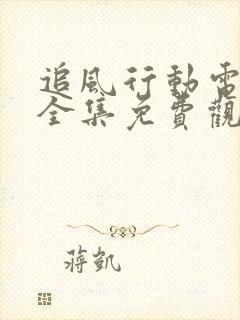 追風行動電
全集免費觀
蔣凱